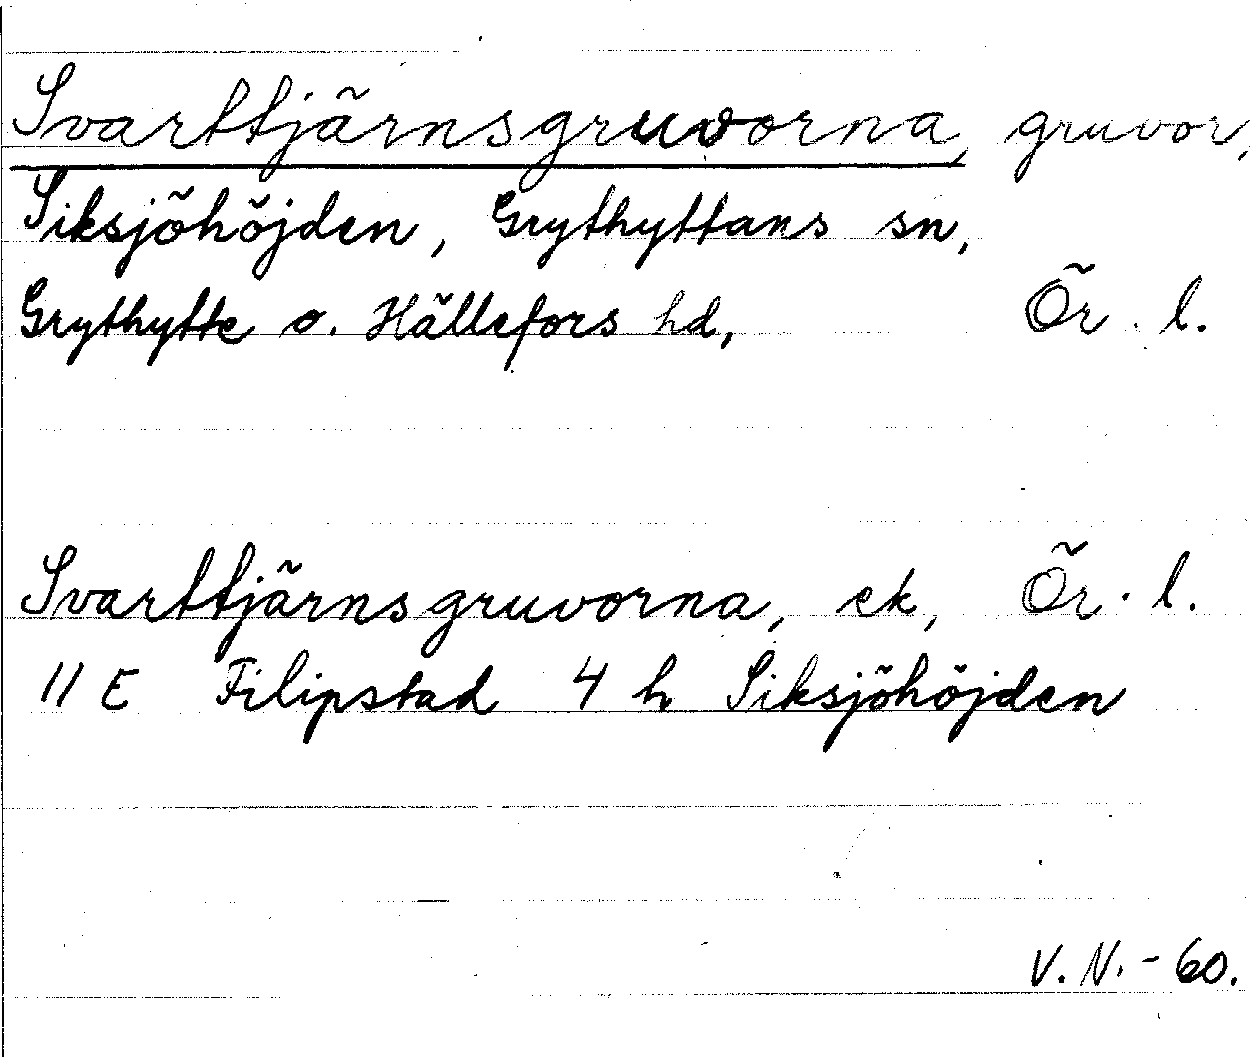 Svarttjärnsgruvorna, gruvor,
Siksjöhöjden, Grythyttans sn,
Grythytte o. Hällefors hd, Ör. l.
Svarttjärnsgruvorna, ek, Ör. l.
11 E Filipstad 4 h Siksjöhöjden
V. N. - 60.